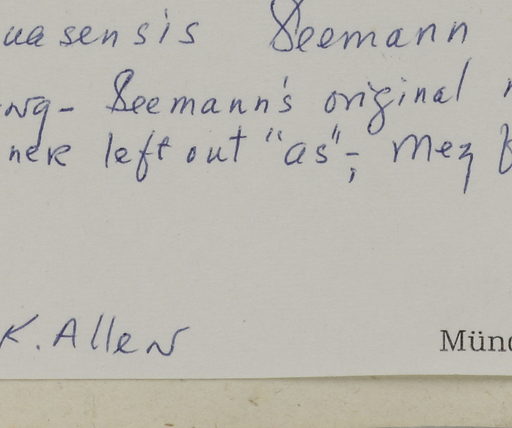 uasensis Seemann
ng- Seemann's original
ner left out "as"-; Mez
K. Allen
Münc